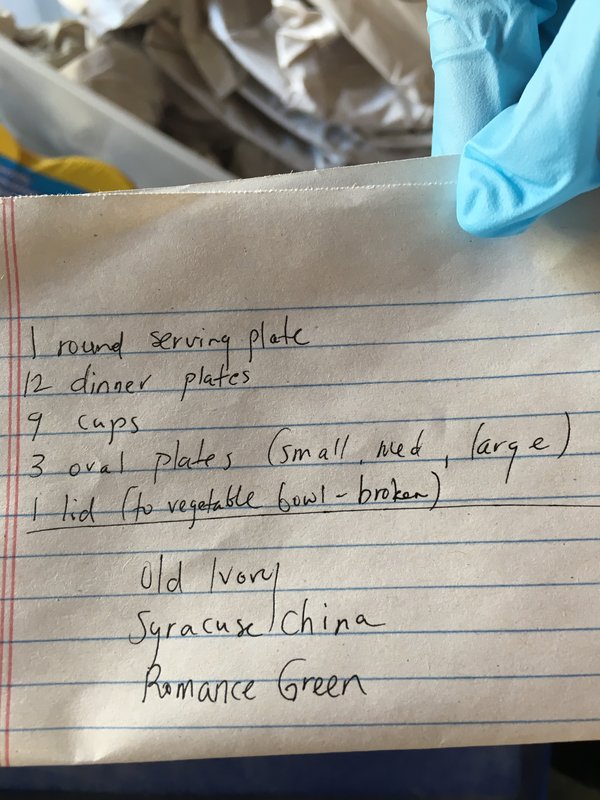 1 round serving plate
12 dinner plates
9 cups
3 oval plates (small, med, large)
1 lid (to vegetable bowl - broken)
Old Ivory
Syracuse China
Romance Green